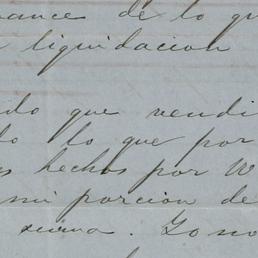 ance de lo qu
liquidacion
do que vendi
do lo que por
as hechos por W
mi porcion de
suma. Lo no